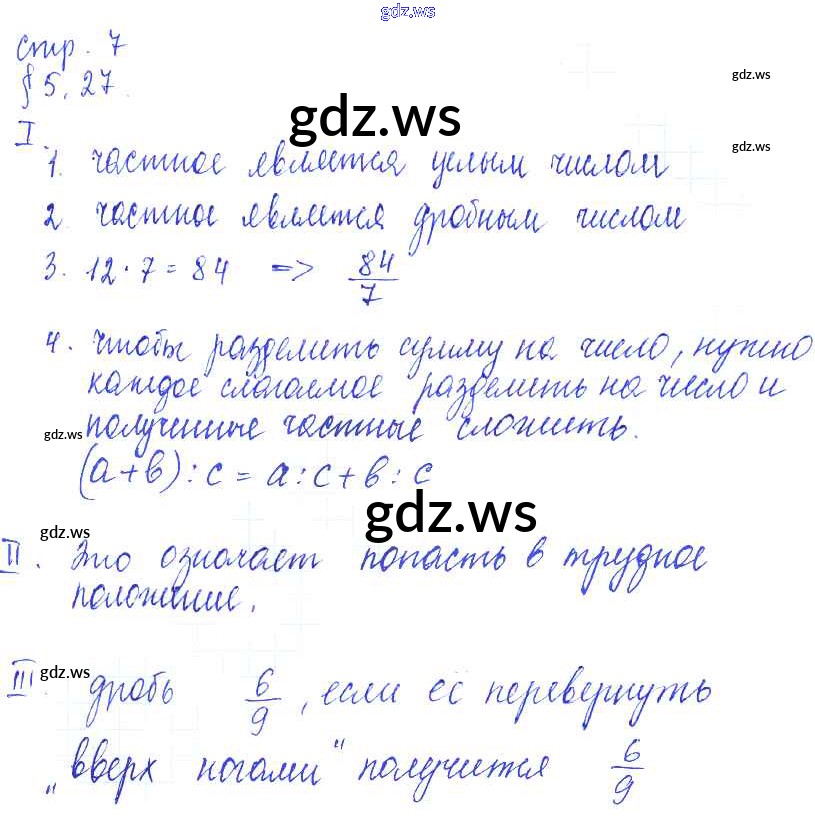 gdz.ws
стр. 7
§ 5.27.
gdz.ws
gdz.ws
gdz.ws
I.
1. частное является целым числом
2 частное является дробным числом
3. 12·7=84 => 84/7
4. чтобы разделить сумму на число, нужно
каждое слагаемое разделить на число и
gdz.ws полученные частные сложить.
(а+в):с=а:с+в:с
gdz.ws
gdz.ws
II. Это означает попасть в трудное
положение.
gdz.ws
III. дробь 6/9, если её перевернуть
„вверх ногами" получится 6/9